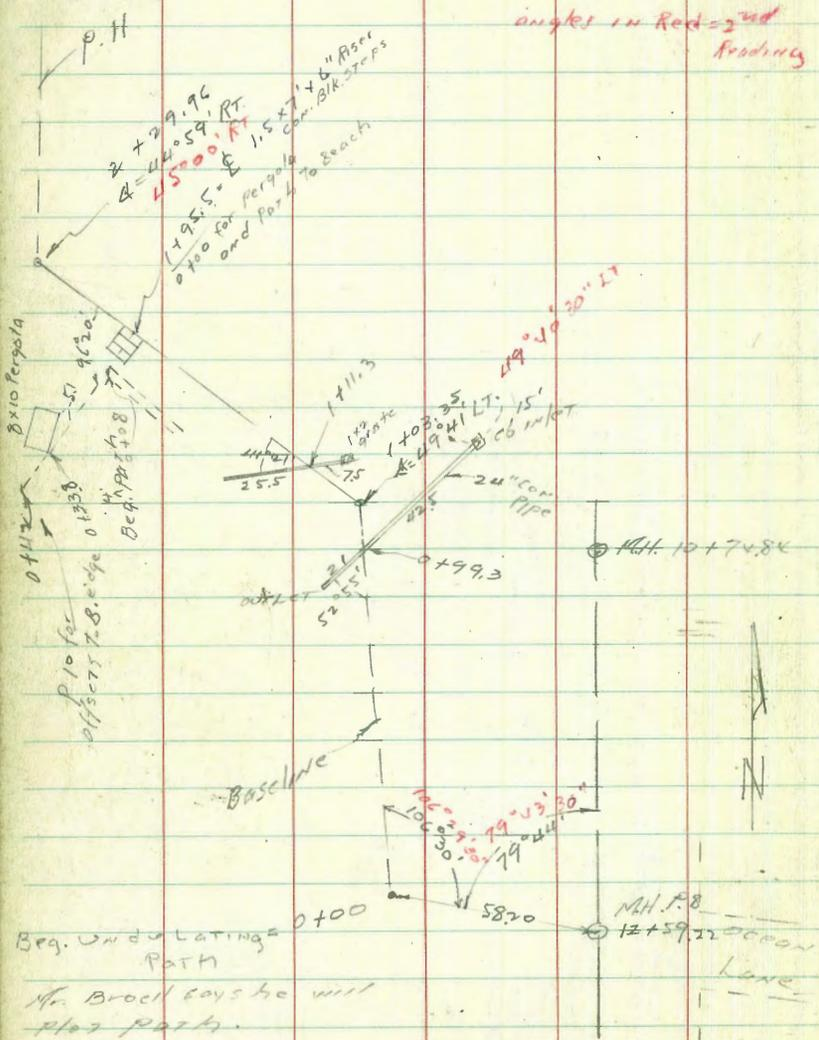 P. 11
angles in Red = 2nd
Reading
2 + 29.96
∡ = 44°59' RT.
45°00' RT
1+95.5 = ℄ 1.5 x 7' x 6" Riser
Con. Blk. Steps
0+00 for Pergola
and Path to Beach
8x10 Pergola
51
96°20'
77
Beg. Path 0+08
4'
0+33.8
0+42
P 10 for
offsets T.B. edge
1+11.3
1x2
grate
7.5
25.5
49°40'30" LT
1+03.35
∡ = 49°41' LT.
15'
CB INLET
24" Con
Pipe
42.5
0+99.3
OUTLET
2'
52°55'
M.H. 10+74.84
Baseline
106°29'30"
106°30'
79°43'30"
79°44'
N
0+00
58.20
M.H. P.8
12+59.22
OCEAN
LANE
Beg. Undulating =
Path
Mr. Broell says he will
plot path.